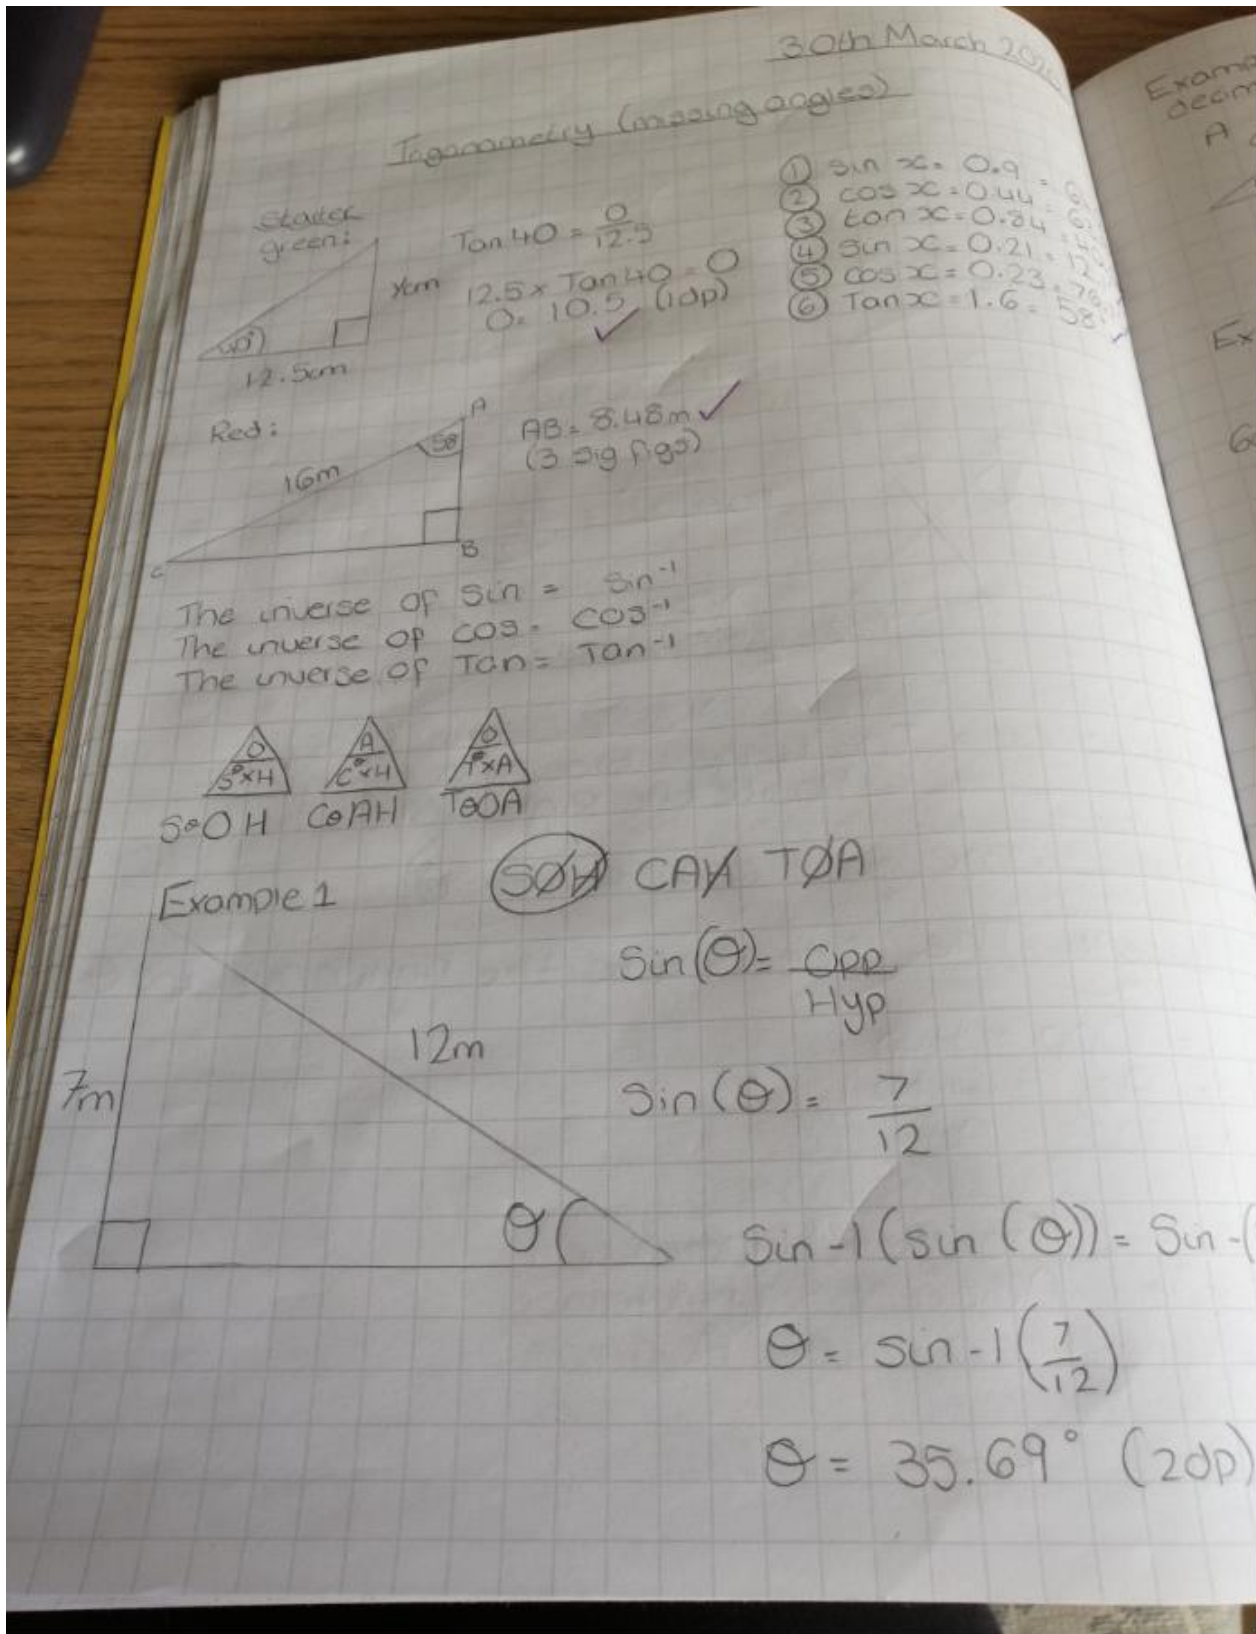 30th March
Trigonometry (missing angles)
Starter
green:
40°
12.5cm
xcm
Tan 40 = O/12.5
12.5 x Tan 40 = O
O = 10.5 (1dp)
① sin x = 0.9 =
② cos x = 0.44 =
③ tan x = 0.84 =
④ sin x = 0.21 = 12.
⑤ cos x = 0.23 = 76.
⑥ Tan x = 1.6 = 58
Red:
16m
58
A
B
C
AB = 8.48m
(3 sig figs)
The inverse of sin = Sin⁻¹
The inverse of cos = COS⁻¹
The inverse of Tan = Tan⁻¹
O
SθxH
A
CθxH
O
TθxA
SθOH CθAH TθOA
Example 1
SOH CAH TOA
7m
12m
θ
Sin(θ) = Opp/Hyp
Sin(θ) = 7/12
Sin-1(sin(θ)) = Sin-(
θ = sin-1(7/12)
θ = 35.69° (2dp)
Examp
decim
A
Ex